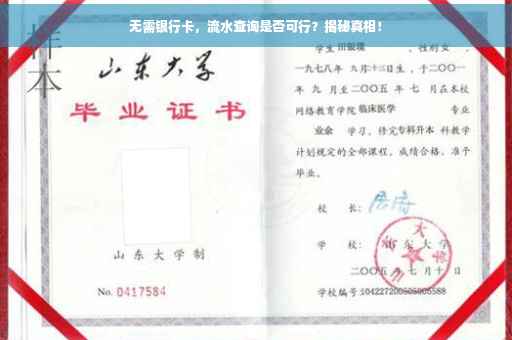 无需银行卡，流水查询是否可行？揭秘真相！
样本
山东大学
毕业证书
山东大学制
No. 0417584
学生 田银霞 ，性别 女 ，
一九七八年 九月十三日生，于二〇〇一
年 九 月至二〇〇五 年 七 月在本校
网络教育学院 临床医学 专业
业余 学习，修完专科升本 科教学
计划规定的全部课程，成绩合格，准予
毕业。
校 长：
学 校：山东大学
二〇〇五 年 七 月 十 日
学校编号：104227200505005588